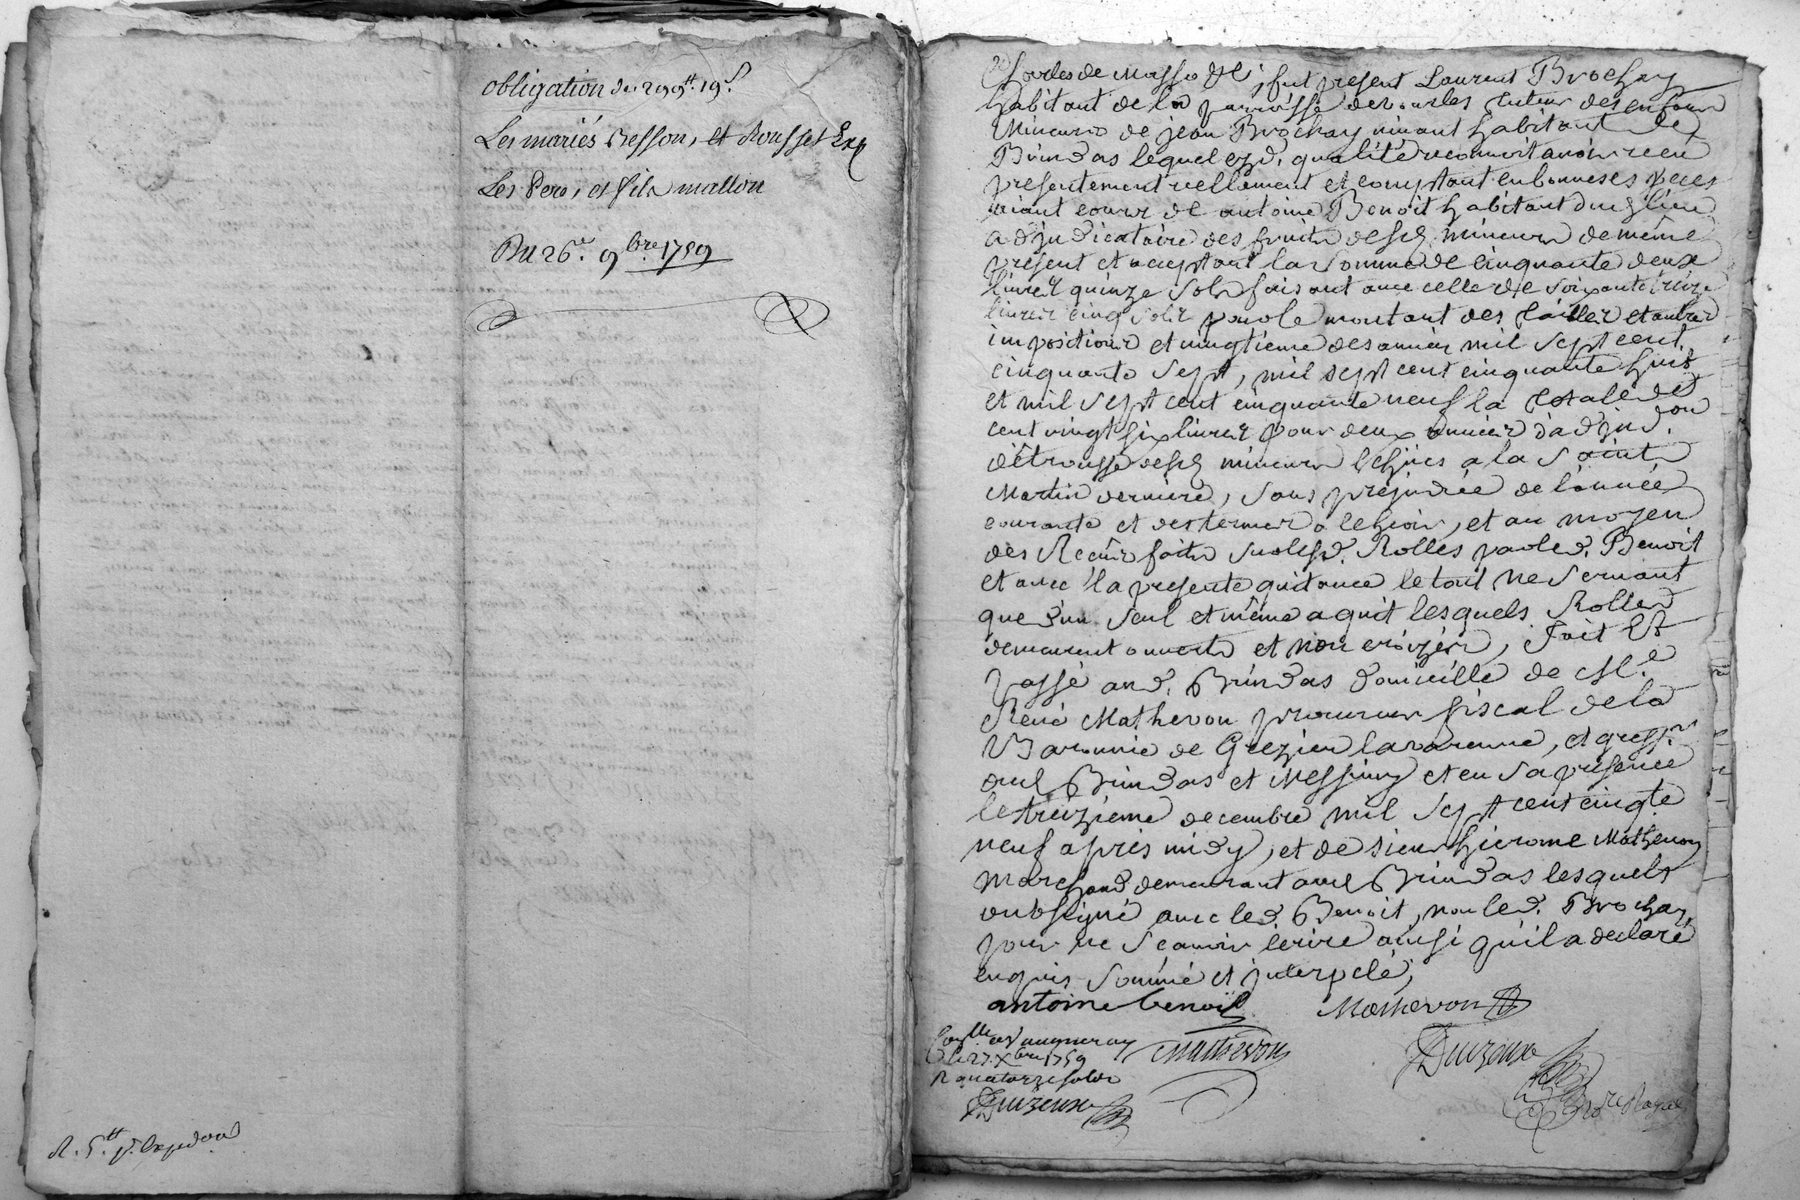 obligation de 299ᵗᵗ 19ˢ
Les mariés Besson, et Rousset
Les Pere, et fils mallon
Du 26ᵉ. 9bre. 1759
R. 5ᵗᵗ p. Expedᵒⁿ
fut present Laurent Brochay
habitant de la parroisse de tuteur des enfans
Mineurs de jean Brochay vivant habitant de
Brindas lequel esd. qualité reconnoit avoir receu
presentement reellement et comptant en bonnes especes
aiant cours de antoine Benoit habitant dud lieu
adjudicataire des fruits desd mineurs de même
present et acceptant la somme de cinquante deux
livres quinze sols faisant avec celle de soixante treize
livres cinq sols pour le montant des tailles et autres
impositions et vingtieme des années mil sept cent
cinquante sept, mil sept cent cinquante huit
et mil sept cent cinquante neuf la totale de
cent vingt six livres pour deux années d'adjud.ᵒⁿ
d'étrousse desd mineurs echües a la Saint
Martin derniere, sans prejudice de l'année
courante et des termes a echoir, et au moyen
des Receus faits sur lesd. Rolles par led. Benoit
et avec la presente quitance le tout ne servant
que d'un seul et même aquit lesquels Rolles
demeurent ouverts et non croizés, Fait Et
passé aud. Brindas domicille de Mᵉ
René Mathevon procureur fiscal de la
Baronnie de Grezieu lavarenne, et greff.
dud Brindas et Messimy et en sa presence
le treizieme decembre mil sept cent cinqte
neuf après midy, et de sieur hierome Mathevon
marchand demeurant aud Brindas lesquels
ont signé avec led. Benoit, non led. Brochay
pour ne scavoir écrire ainsi qu'il a declaré
enquis sommé et interpelé,
antoine benoit Mathevon
Conᵗˡˡᵉ a Vaugneray Mathevon
le 27. Xbre 1759
R quatorze sols